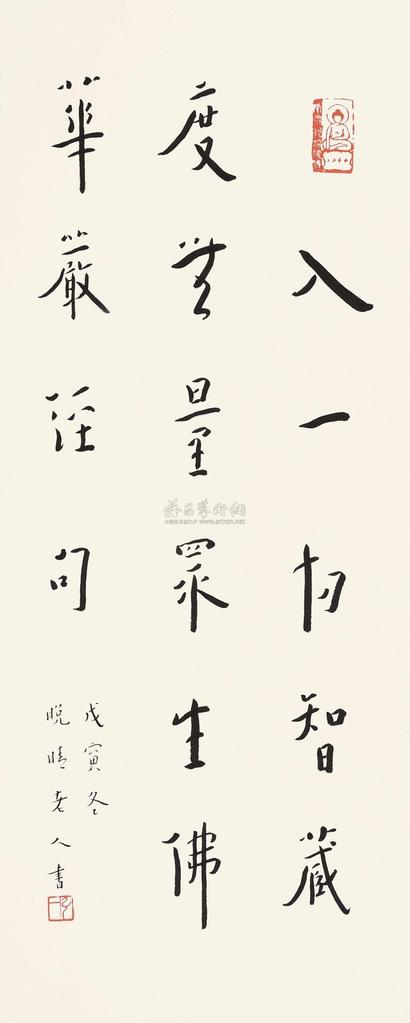 入一切智藏
度無量眾生佛
華嚴經句
戊寅冬
晚晴老人書
雅昌藝術網
www.artron.net